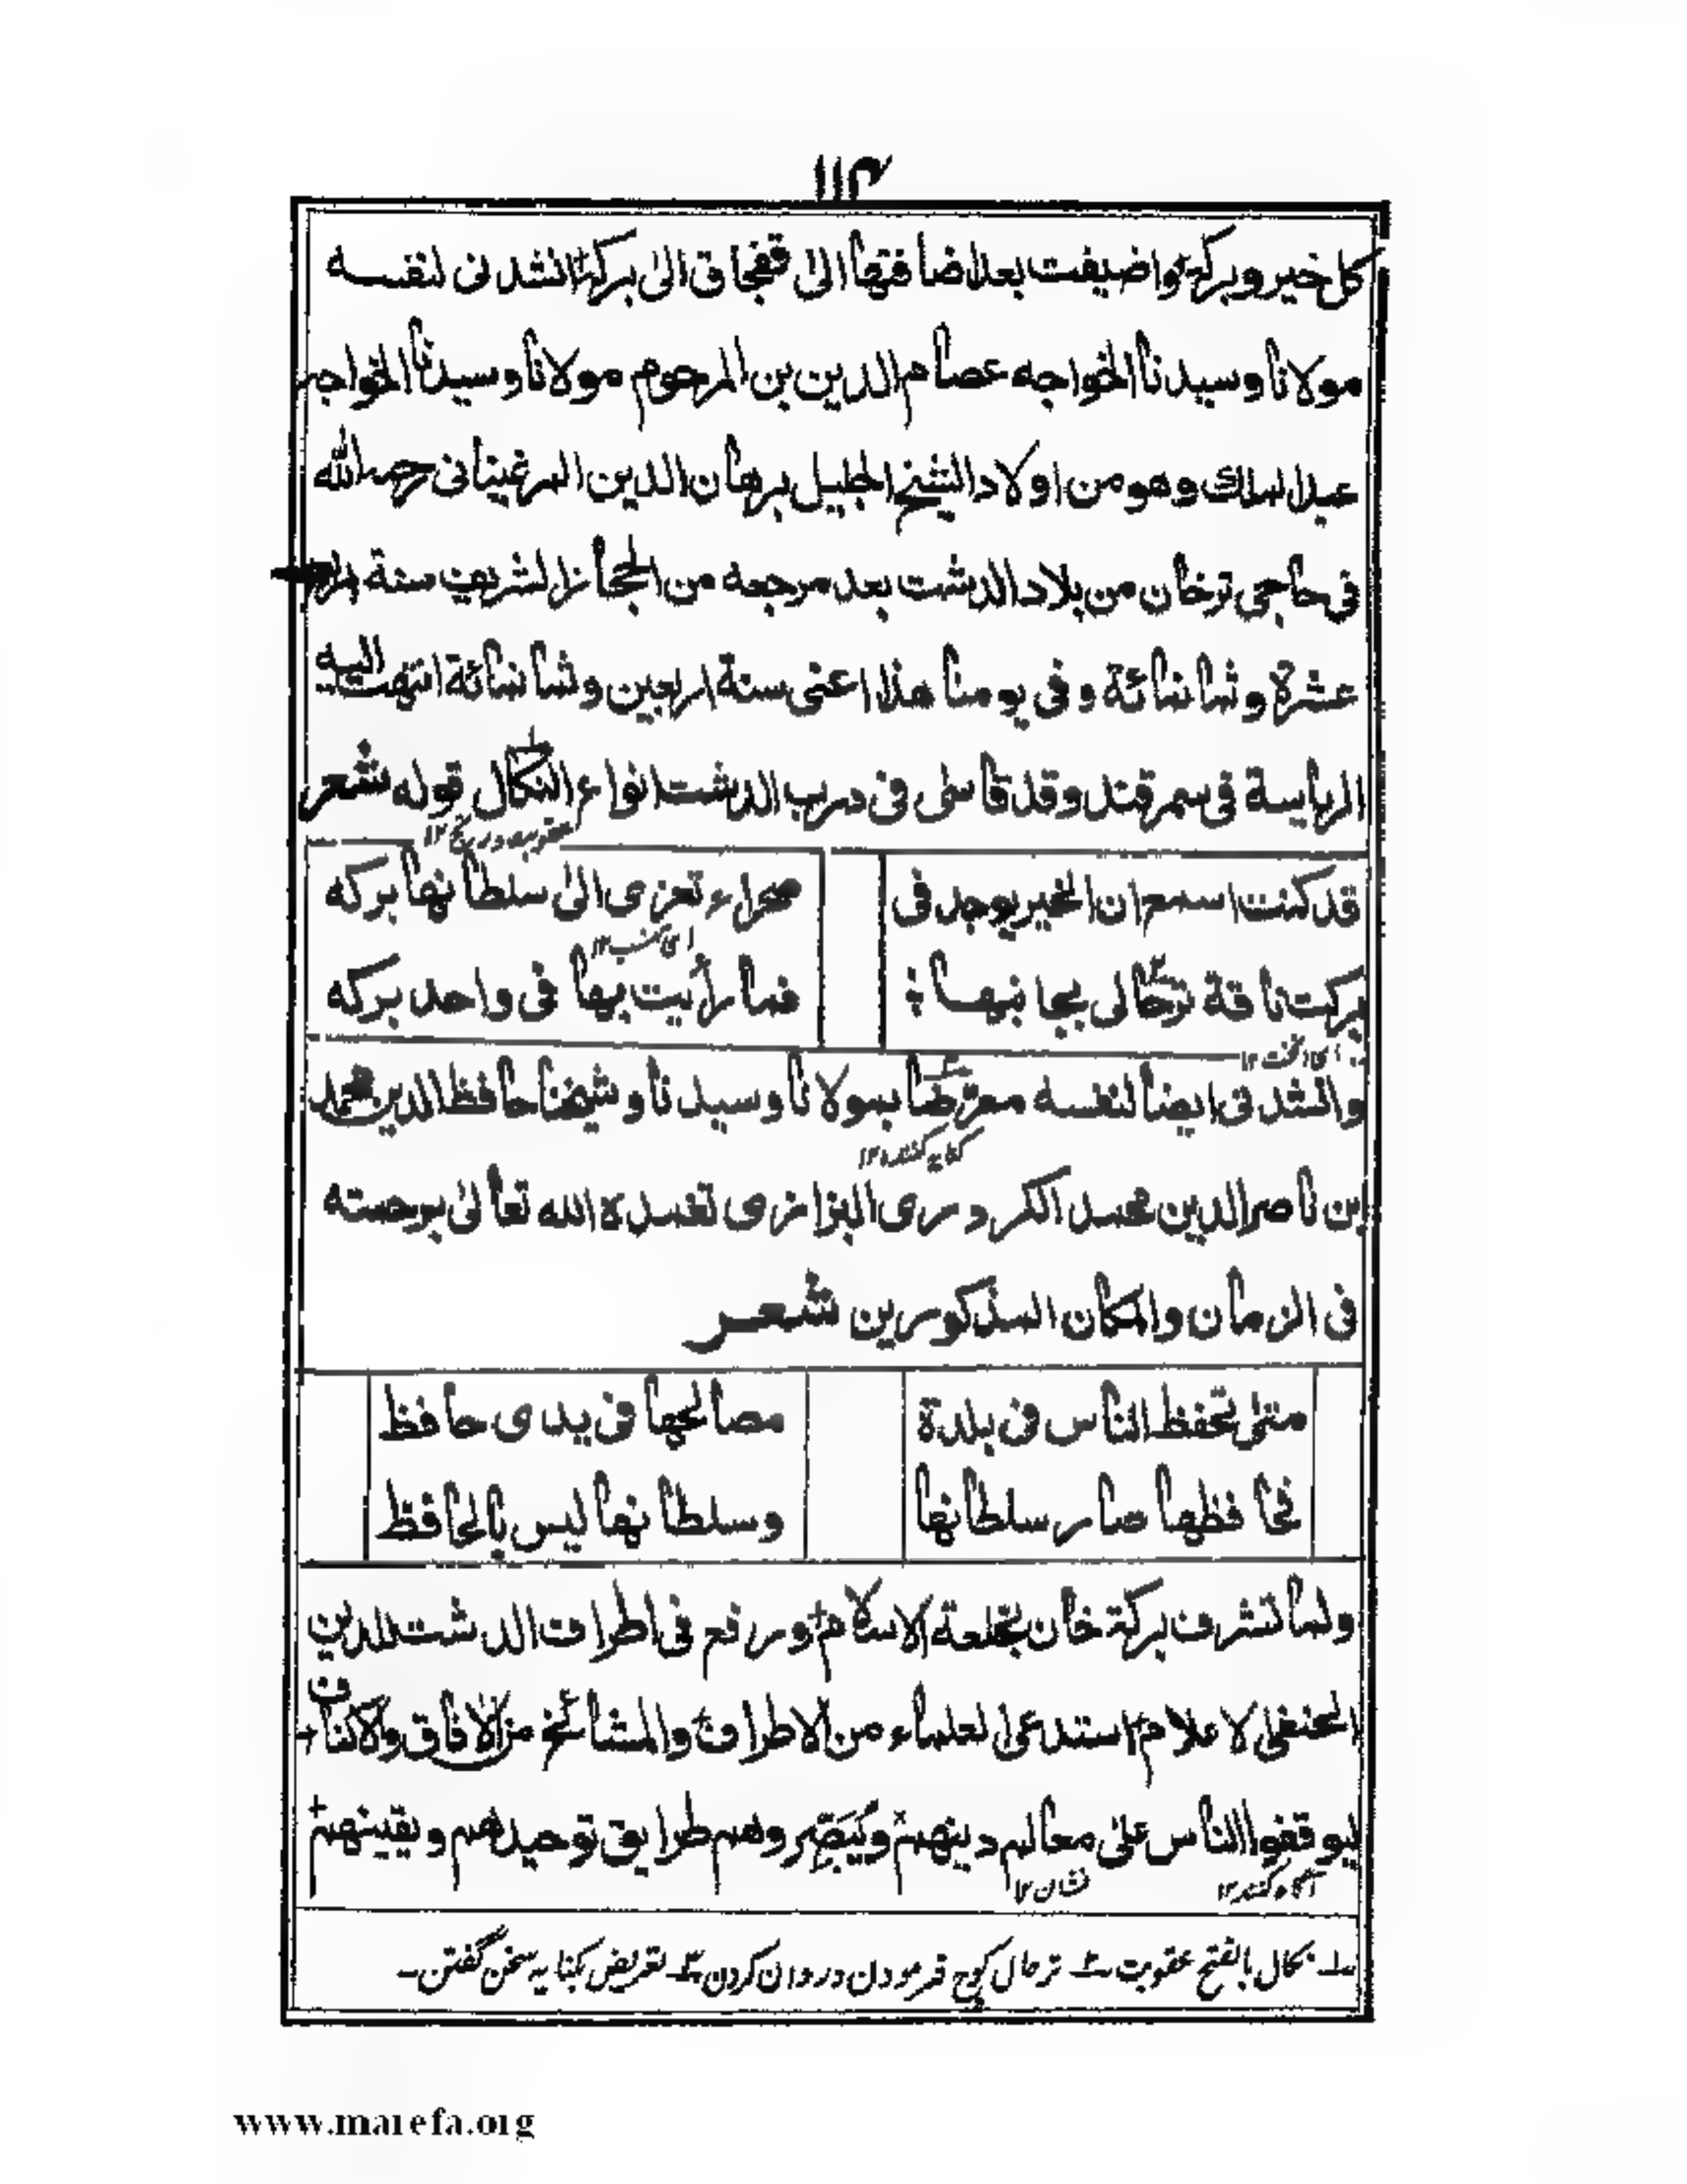 ۱۱۴
كل خير وبركة واضيفت بعد اضافتها الى قفجاق الى بركة انشدنى لنفسه
مولانا وسيدنا الخواجه عصام الدين بن المرحوم مولانا وسيدنا الخواجه
عبد الملك وهو من اولاد الشيخ الجليل برهان الدين المرغينانى رحمه الله
فى حاجى ترخان من بلاد الدشت بعد مرجعه من الحجاز الشريف سنة اربع
عشرة وثمانمائة وفى يومنا هذا اعنى سنة اربعين وثمانمائة انتهت اليه
الرياسة فى سمرقند وقد قاسى فى درب الدشت انواع النكال قوله شعر
عقوبت و رنج ۱۲
قد كنت اسمع ان الخير يوجد فى
صحراء تعزى الى سلطانها بركه
اى منسب ۱۲
بركت ناقة ترحالى بجانبها
فما رأيت بها فى واحد بركه
وانشدنى ايضا لنفسه معرّضا بمولانا وسيدنا وشيخنا حافظ الدين محمد
كنايه كننده ۱۲
بن ناصر الدين محمد الكردرى البزازى تغمده الله تعالى برحمته
فى الزمان والمكان المذكورين شعر
متى تحفظ الناس فى بلدة
مصالحها فى يدى حافظ
فحافظها صار سلطانها
وسلطانها ليس بالحافظ
ولما تشرف بركة خان بخلعة الاسلام ورفع فى اطراف الدشت للدين
الحنفى الاعلام استدعى العلماء من الاطراف والمشائخ من الآفاق والاكناف
ليوقفوا الناس على معالم دينهم ويبصروهم طرايق توحيدهم ويقينهم
آگاه كنند ۱۲
نشان ۱۲
۱ نكال بالفتح عقوبت ۲ ترحال كوچ فرمودن و روان كردن ۳ تعريض بكنايه سخن گفتن
www.marefa.org